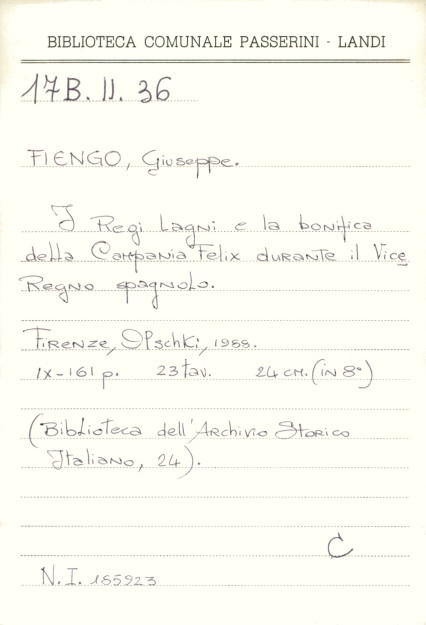 BIBLIOTECA COMUNALE PASSERINI - LANDI
17B. II. 36
FIENGO, Giuseppe.
I Regi Lagni e la bonifica
della Campania Felix durante il Vice
Regno spagnolo.
Firenze, Olschki, 1988.
IX-161 p. 23 tav. 24 cm. (in 8°)
(Biblioteca dell'Archivio Storico
Italiano, 24).
C
N.I. 185923